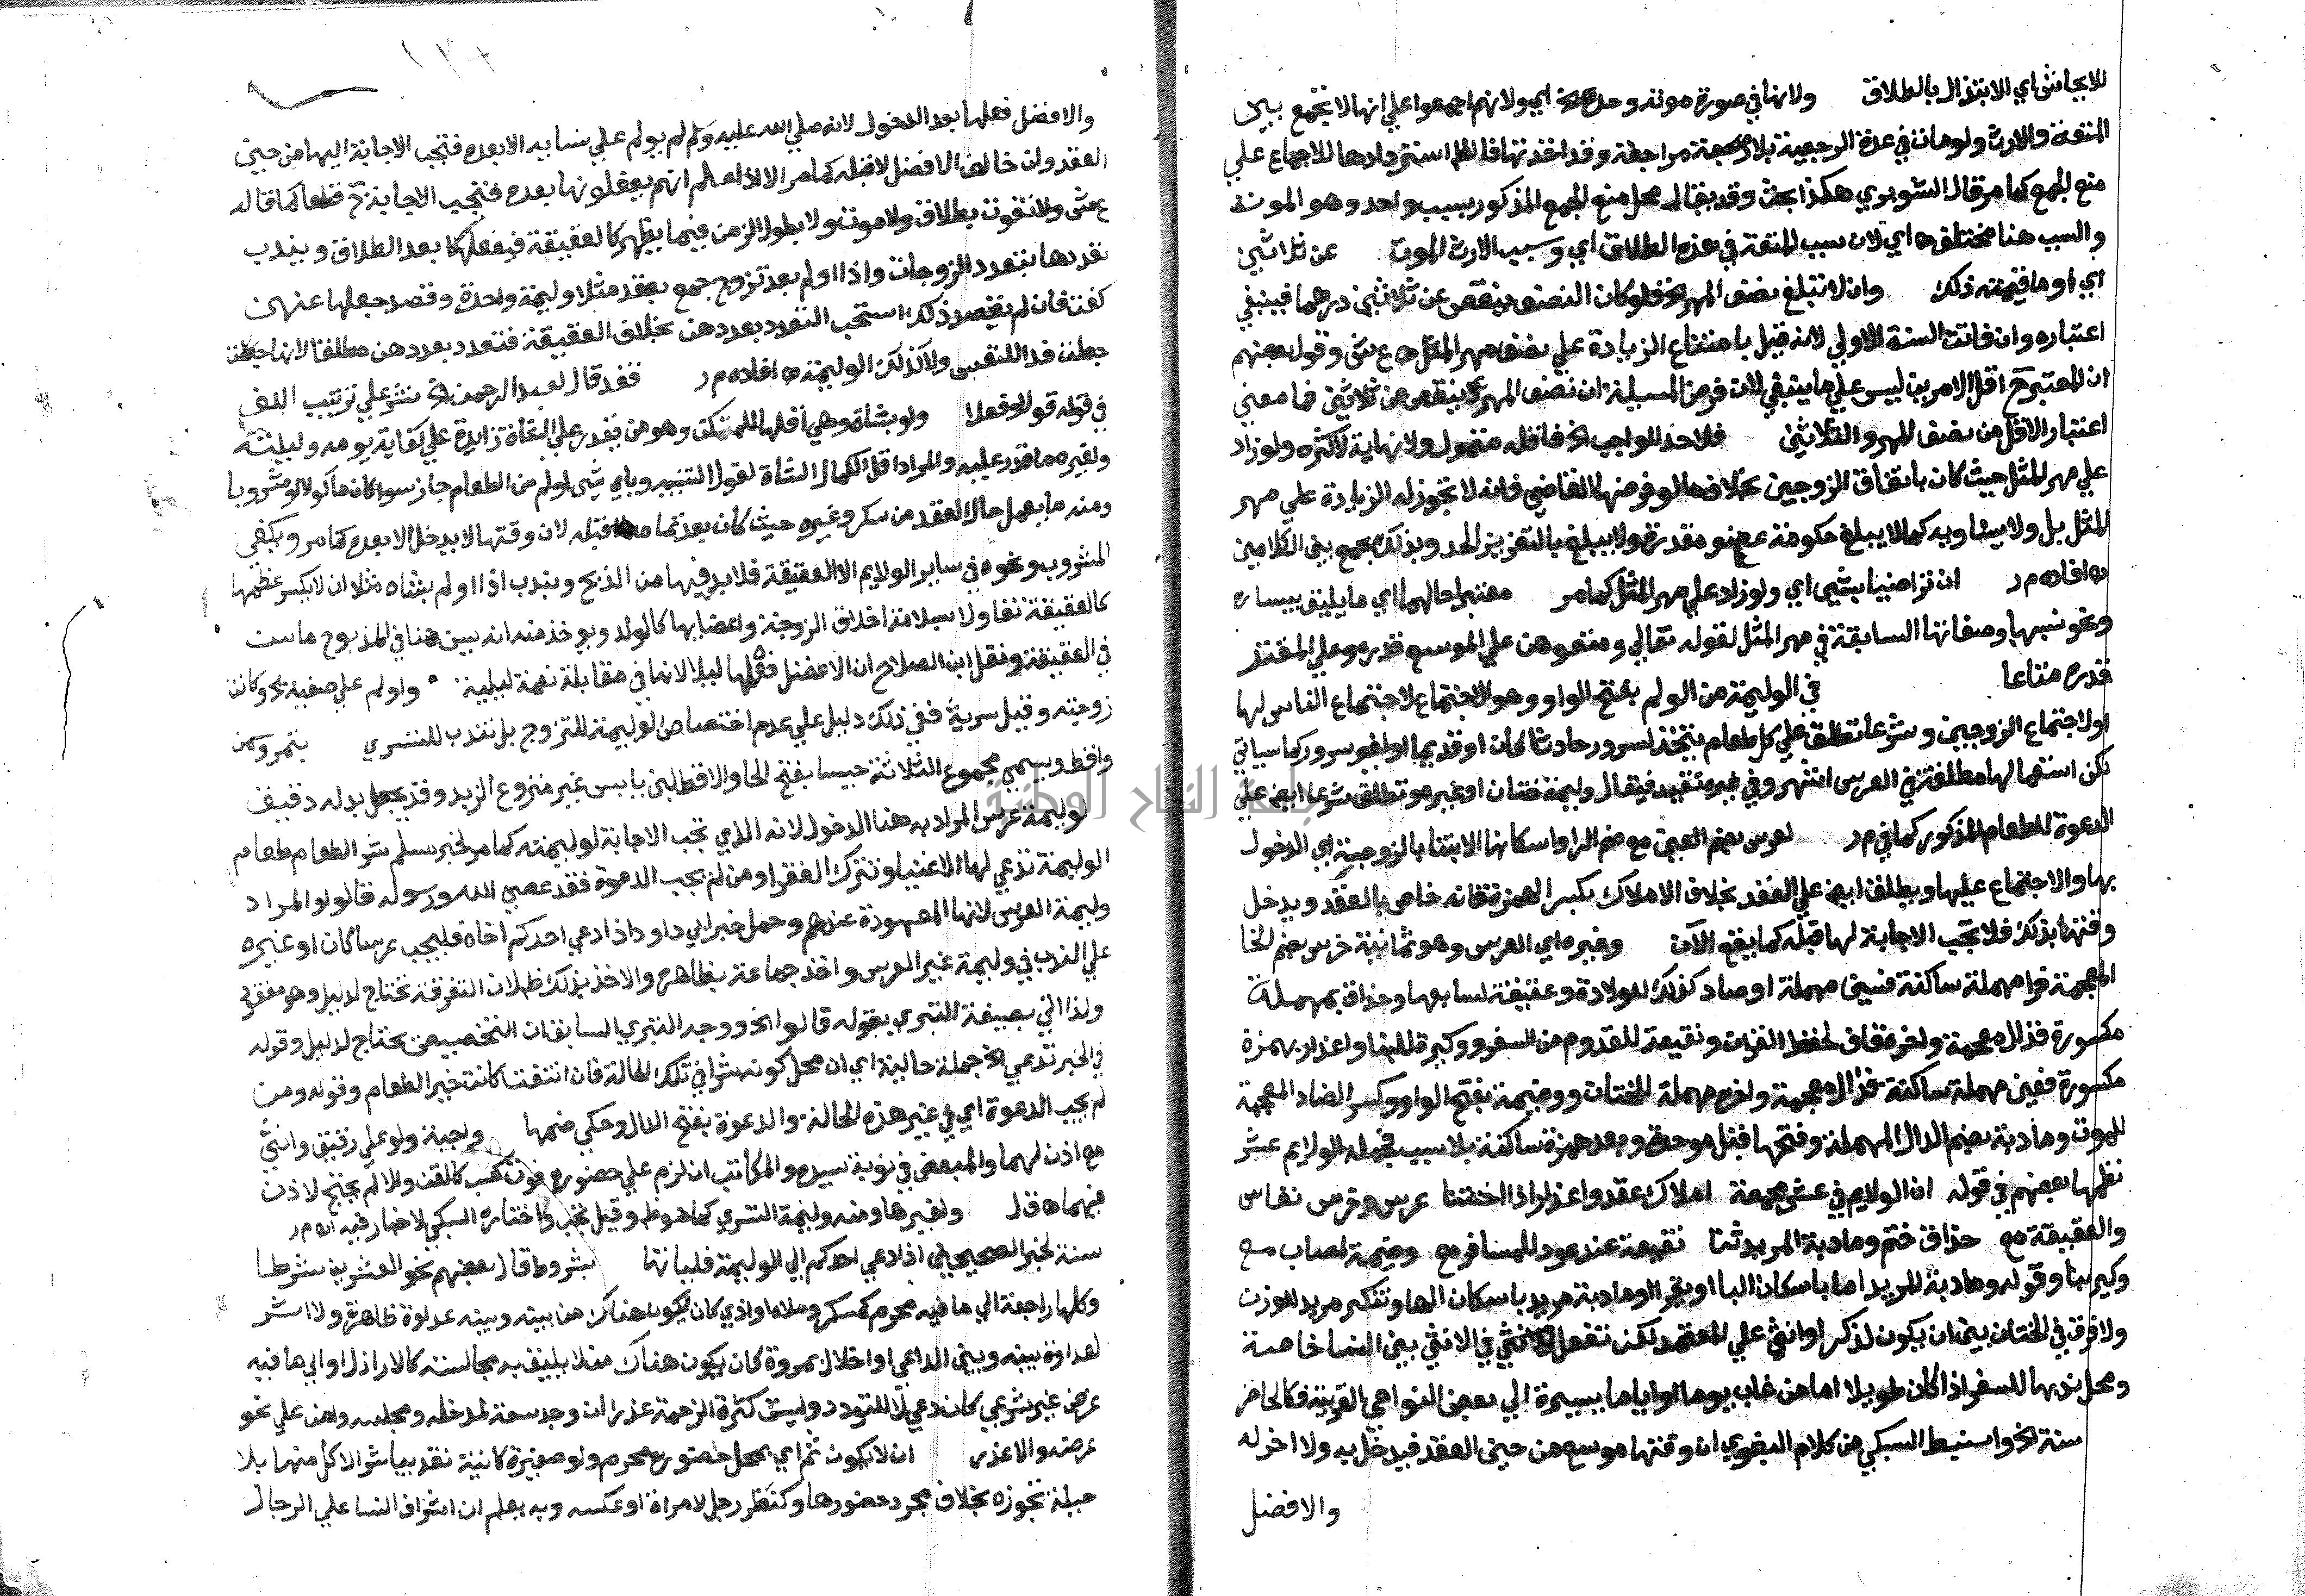 للايحاش اي الابتذال بالطلاق ولانها في صورة موته وحده الخ اي ولانهم اجمعوا علي انها لا تجمع بين
المتعة والارث ولو مات في عدة الرجعية بلا مراجعة وقد اخذتها فالظاهر استردادها للاجماع علي
منع الجمع كما مر قال الشوبري هكذا بحث وقد يقال محل منع الجمع المذكور بسبب واحد وهو الموت
والسبب هنا مختلف اه اي لان سبب المتعة في هذه الطلاق اي وسبب الارث الموت عن ثلاثين
اي او ما قيمته ذلك وان لا تبلغ نصف المهر الخ فلو كان النصف ينقص عن ثلاثين درهما فينبغي
اعتباره وان فاتت السنة الاولي لانه قيل بامتناع الزيادة علي نصف مهر المثل اه ع ش وقول بعضهم
ان المعتبر ح اقل الامرين ليس علي ما ينبغي لان فرض المسيلة ان نصف المهر ينقص عن ثلاثين فما معني
اعتبار الاقل من نصف المهر والثلاثين فلا حد للواجب الخ فاقله متمول ولا نهاية لاكثره ولو زاد
علي مهر المثل حيث كان باتفاق الزوجين بخلاف ما لو فرضها القاضي فانه لا تجوز له الزيادة علي مهر
المثل بل ولا يساويه كما لا يبلغ حكومة عضو مقدره ولا يبلغ بالتعزير الحد وبذلك يجمع بين الكلامين
اه افاده م ر ان تراضيا بشي اي ولو زاد علي مهر المثل كما مر معتبرا حالهما اي ما يليق بيساره
ونحو نسبها وصفاتها السابقة في مهر المثل لقوله تعالي ومتعوهن علي الموسع قدره وعلي المقتر
قدره متاعا في الوليمة من الولم بفتح الواو وهو الاجتماع لاجتماع الناس لها
او لاجتماع الزوجين وشرعا تطلق علي كل طعام يتخذ لسرور حادث كختان او قديما او لغير سرور كما سياتي
لكن استعمالها مطلقة في العرس اشهر وفي غيره تقيد فيقال وليمة ختان او غيره وتطلق شرعا ايضا علي
الدعوة للطعام المذكور كما في م ر لعرس بضم العين مع ضم الرا واسكانها الابتنا بالزوجة اي الدخول
بها والاجتماع عليها ويطلق ايضا علي العقد بخلاف الاملاك بكسر الهمزة فانه خاص بالعقد ويدخل
وقتها بذلك فلا تجب الاجابة لها قبله كما يقع الآن وغيره اي العرس وهو ثمانية خرس بضم الخا
المعجمة فرا مهملة ساكنة فسين مهملة او صاد كذلك للولادة وعقيقة لسابعها وحذاق بمهملة
مكسورة فذال معجمة واخره قاف لحفظ القران ونقيعة للقدوم من السفر ووكيرة للبنا واعذار بهمزة
مكسورة فعين مهملة ساكنة فذال معجمة واخره مهملة للختان ووضيمة بفتح الواو وكسر الضاد المعجمة
للموت ومادبة بضم الدال المهملة وفتحها قبل موحدة وبعد همزة ساكنة بلا سبب فجملة الولايم عشر
نظمها بعضهم في قوله ان الولايم في عشر مجمعة املاك عقد واعذار اذا اختتنا عرس وخرس نفاس
والعقيقة مع حذاق ختم ومادبة المريد ثنا نقيعة عند عود للمسافر مع وضيمة لمصاب مع
وكير بنا وقوله ومادبة المريد اما باسكان البا او بجر او مادبة مريد باسكان الها وتنكير مريد للوزن
ولا فرق في الختان بين ان يكون لذكر او انثي علي المعتمد لكن تفعل في الانثي بين النسا خاصة
ومحل ندبها للسفر اذا كان طويلا اما من غاب يوما او اياما يسيرة الي بعض النواحي القريبة فكالحاضر
سنة الخ واستنبط السبكي من كلام البغوي ان وقتها موسع من حين العقد فيدخل به ولا اخر له
والافضل
والافضل فعلها بعد الدخول لانه صلي الله عليه وسلم لم يولم علي نسايه الا بعده فتجب الاجابة اليها من حين
العقد وان خالف الافضل لا قبله كما مر الا اذا علم انهم يفعلونها بعده فتجب الاجابة ح قطعا كما قاله
ع ش ولا تفوت بطلاق ولا موت ولا بطول الزمن فيما يظهر كالعقيقة فيفعلها بعد الطلاق ويندب
تعددها بتعدد الزوجات واذا اولم بعد تزوج جمع بعقد مثلا وليمة واحدة وقصد جعلها عنهن
كفت فان لم يقصد ذلك استحب التعدد بعددهن بخلاف العقيقة فتعدد بعددهن مطلقا لانها جعلت
فدا للنفس ولا كذلك الوليمة اه افاده م ر فقد قال لعبد الرحمن الخ نشر علي ترتيب اللف
في قوله قولا وفعلا ولو بشاة وهي اقلها للمتمكن وهو من يقدر علي الشاة زايدة علي كفاية يومه وليلته
ولغيره ما قدر عليه والمراد اقل الكمال الشاة لقول التنبيه وباي شي اولم من الطعام جاز سوا كان ماكولا او مشروبا
ومنه ما يعمل حال العقد من سكر وغيره حيث كان بعد تمامه قبله لان وقتها لا يدخل الا بعده كما مر ويكفي
المشروب ونحوه في ساير الولايم الا العقيقة فلا بد فيها من الذبح ويندب اذا اولم بشاة مثلا ان لا يكسر عظمها
كالعقيقة تفاولا بسلامة اخلاق الزوجة واعضايها كالولد ويوخذ منه انه يسن هنا في المذبوح ما سن
في العقيقة ونقل ابن الصلاح ان الافضل فعلها ليلا لانها في مقابلة نعمة ليلية واولم علي صفية الخ وكانت
زوجته وقيل سرية ففي ذلك دليل علي عدم اختصاص الوليمة للتزوج بل تندب للتسري بتمر وسمن
واقط ويسمي مجموع الثلاثة حيسا بفتح الحا والاقط لبن يابس غير منزوع الزبد وقد يجعل بدله دقيق
لوليمة عرس المراد به هنا الدخول لانه الذي تجب الاجابة لوليمته كما مر لخبر مسلم شر الطعام طعام
الوليمة تدعي لها الاغنيا وتترك الفقرا ومن لم يجب الدعوة فقد عصي الله ورسوله قالوا والمراد
وليمة العرس لانها المعهودة عندهم وحمل خبر ابي داود اذا دعي احدكم اخاه فليجب عرسا كان او غيره
علي الندب في وليمة غير العرس واخذ جماعة بظاهره والاخذ بذلك ظ لان التفرقة تحتاج لدليل وهو مفقود
ولذا اتي بصيغة التبري بقوله قالوا الخ ووجه التبري السابق ان التخصيص يحتاج لدليل وقوله
في الخبر تدعي الخ جملة حالية اي ان محل كونه شرا في تلك الحالة فان انتفت كانت خير الطعام وقوله ومن
لم يجب الدعوة اي في غير هذه الحالة والدعوة بفتح الدال وحكي ضمها واجبة ولو علي رقيق وانثي
مع اذن لهما والمبعض في نوبة سيده والمكاتب ان لزم علي حضوره فوت كسب كالقن والا لم يحتج لاذن
فيهما اه ق ل ولغيرها ومنه وليمة التسري كما هو ظ وقيل تجب واختاره السبكي لاخبار فيه اه م ر
سنة لخبر الصحيحين اذا دعي احدكم الي الوليمة فلياتها بشروط قال بعضهم نحو العشرين شرطا
وكلها راجعة الي ما فيه محرم كمسكر وملاه او اذي كان يكون هناك من بينه وبينه عداوة ظاهرة ولا اثر
لعداوة بينه وبين الداعي او اخلال بمروة كان يكون هناك من لا يليق به مجالسته كالاراذل او الي ما فيه
غرض غير شرعي كان دعي لا للتودد وليس كثرة الزحمة عذرا ان وجد سعة لمدخله ومجلسه وامن علي نحو
عرضه والا عذر ان لا يكون ثم اي بمحل حضوره محرم ولو صغيرة كانية نقد يباشر الاكل منها بلا
حيلة تجوزه بخلاف مجرد حضورها وكنظر رجل لامراة او عكسه وبه يعلم ان اشراف النسا علي الرجال
جامعة النجاح الوطنية